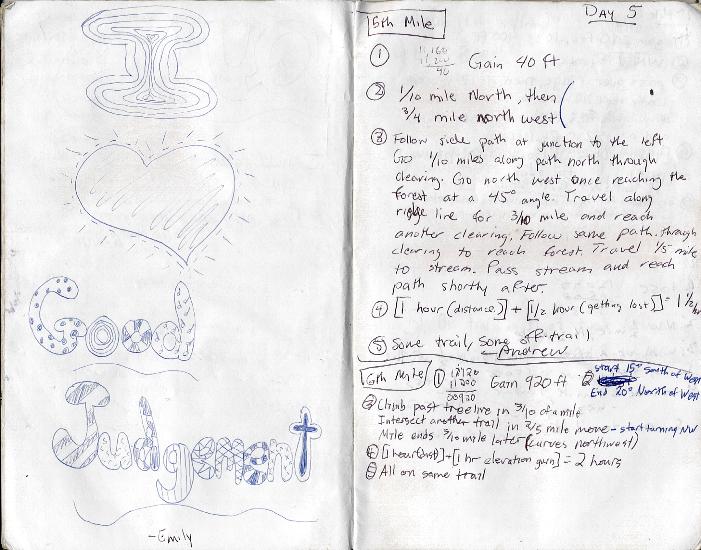 I
Good
Judgement
-Emily
Day 5
5th Mile
① 11,160
11,200
40
Gain 40 ft
② 1/10 mile North, then
3/4 mile north west
③ Follow side path at junction to the left
Go 1/10 miles along path north through
clearing. Go north west once reaching the
forest at a 45° angle. Travel along
ridge line for 3/10 mile and reach
another clearing. Follow same path through
clearing to reach forest. Travel 1/5 mile
to stream. Pass stream and reach
path shortly after.
④ [1 hour (distance)] + [1/2 hour (getting lost)] = 1 1/2 hr
⑤ Some trail, some off-trail
-Andrew
6th Mile ① 12120
11200
00920
Gain 920 ft
② start 15° south of West
End 20° North of West
③ Climb past treeline in 3/10 of a mile
Intersect another trail in 2/5 mile more - start turning NW
Mile ends 3/10 mile later (curves northwest)
④ [1 hour (dist)] + [1 hr elevation gain] = 2 hours
⑤ All on same trail